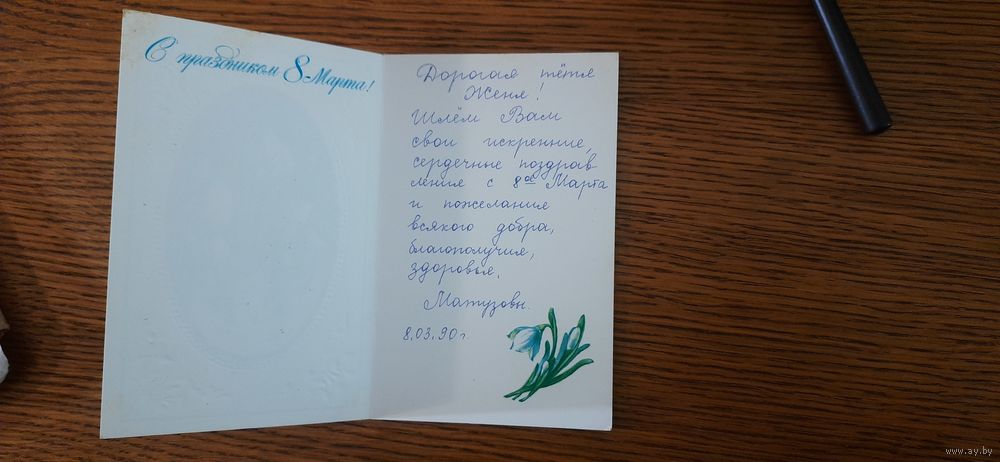 С праздником 8 Марта!
Дорогая тётя
Женя!
Шлём Вам
свои искренние,
сердечные поздрав
ления с 8ое Марта
и пожелания
всякого добра,
благополучия,
здоровья.
Матузовы.
8.03.90 г.
www.ay.by